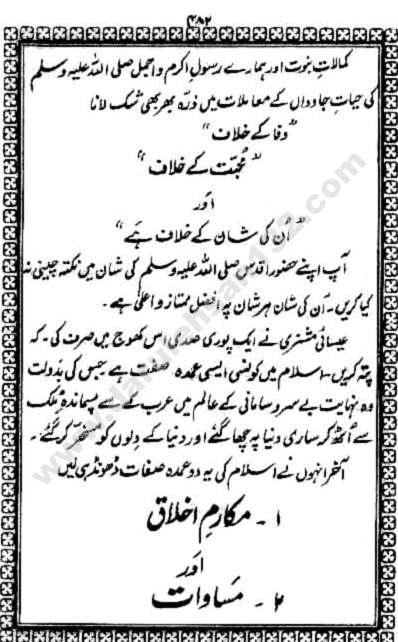 ۴۸۲
کمالاتِ نبوت اور ہمارے رسولِ اکرم و اجمل صلی اللہ علیہ وسلم
کی حیاتِ جاوداں کے معاملات میں ذرّہ بھر بھی شک لانا
”وفا کے خلاف“
”محبّت کے خلاف“
اور
”اُن کی شان کے خلاف ہے“
آپ اپنے حضورِ اقدس صلی اللہ علیہ وسلم کی شان میں نکتہ چینی نہ
کیا کریں۔ اُن کی شان ہر شان پہ افضل ممتاز و اعلیٰ ہے۔
عیسائی مشنری نے ایک پوری صدی اس کھوج میں صرف کی۔ کہ
پتہ کریں۔ اسلام میں کونسی ایسی عمدہ صفت ہے جس کی بدولت
وہ نہایت بے سروسامانی کے عالم میں عرب کے سے پسماندہ مُلک
سے اُٹھ کر ساری دنیا پہ چھا گئے اور دنیا کے دِلوں کو مسخّر کر گئے۔
آخر انہوں نے اسلام کی یہ دو عمدہ صفات ڈھونڈھی لیں
۱۔ مکارمِ اخلاق
اور
۲۔ مساوات